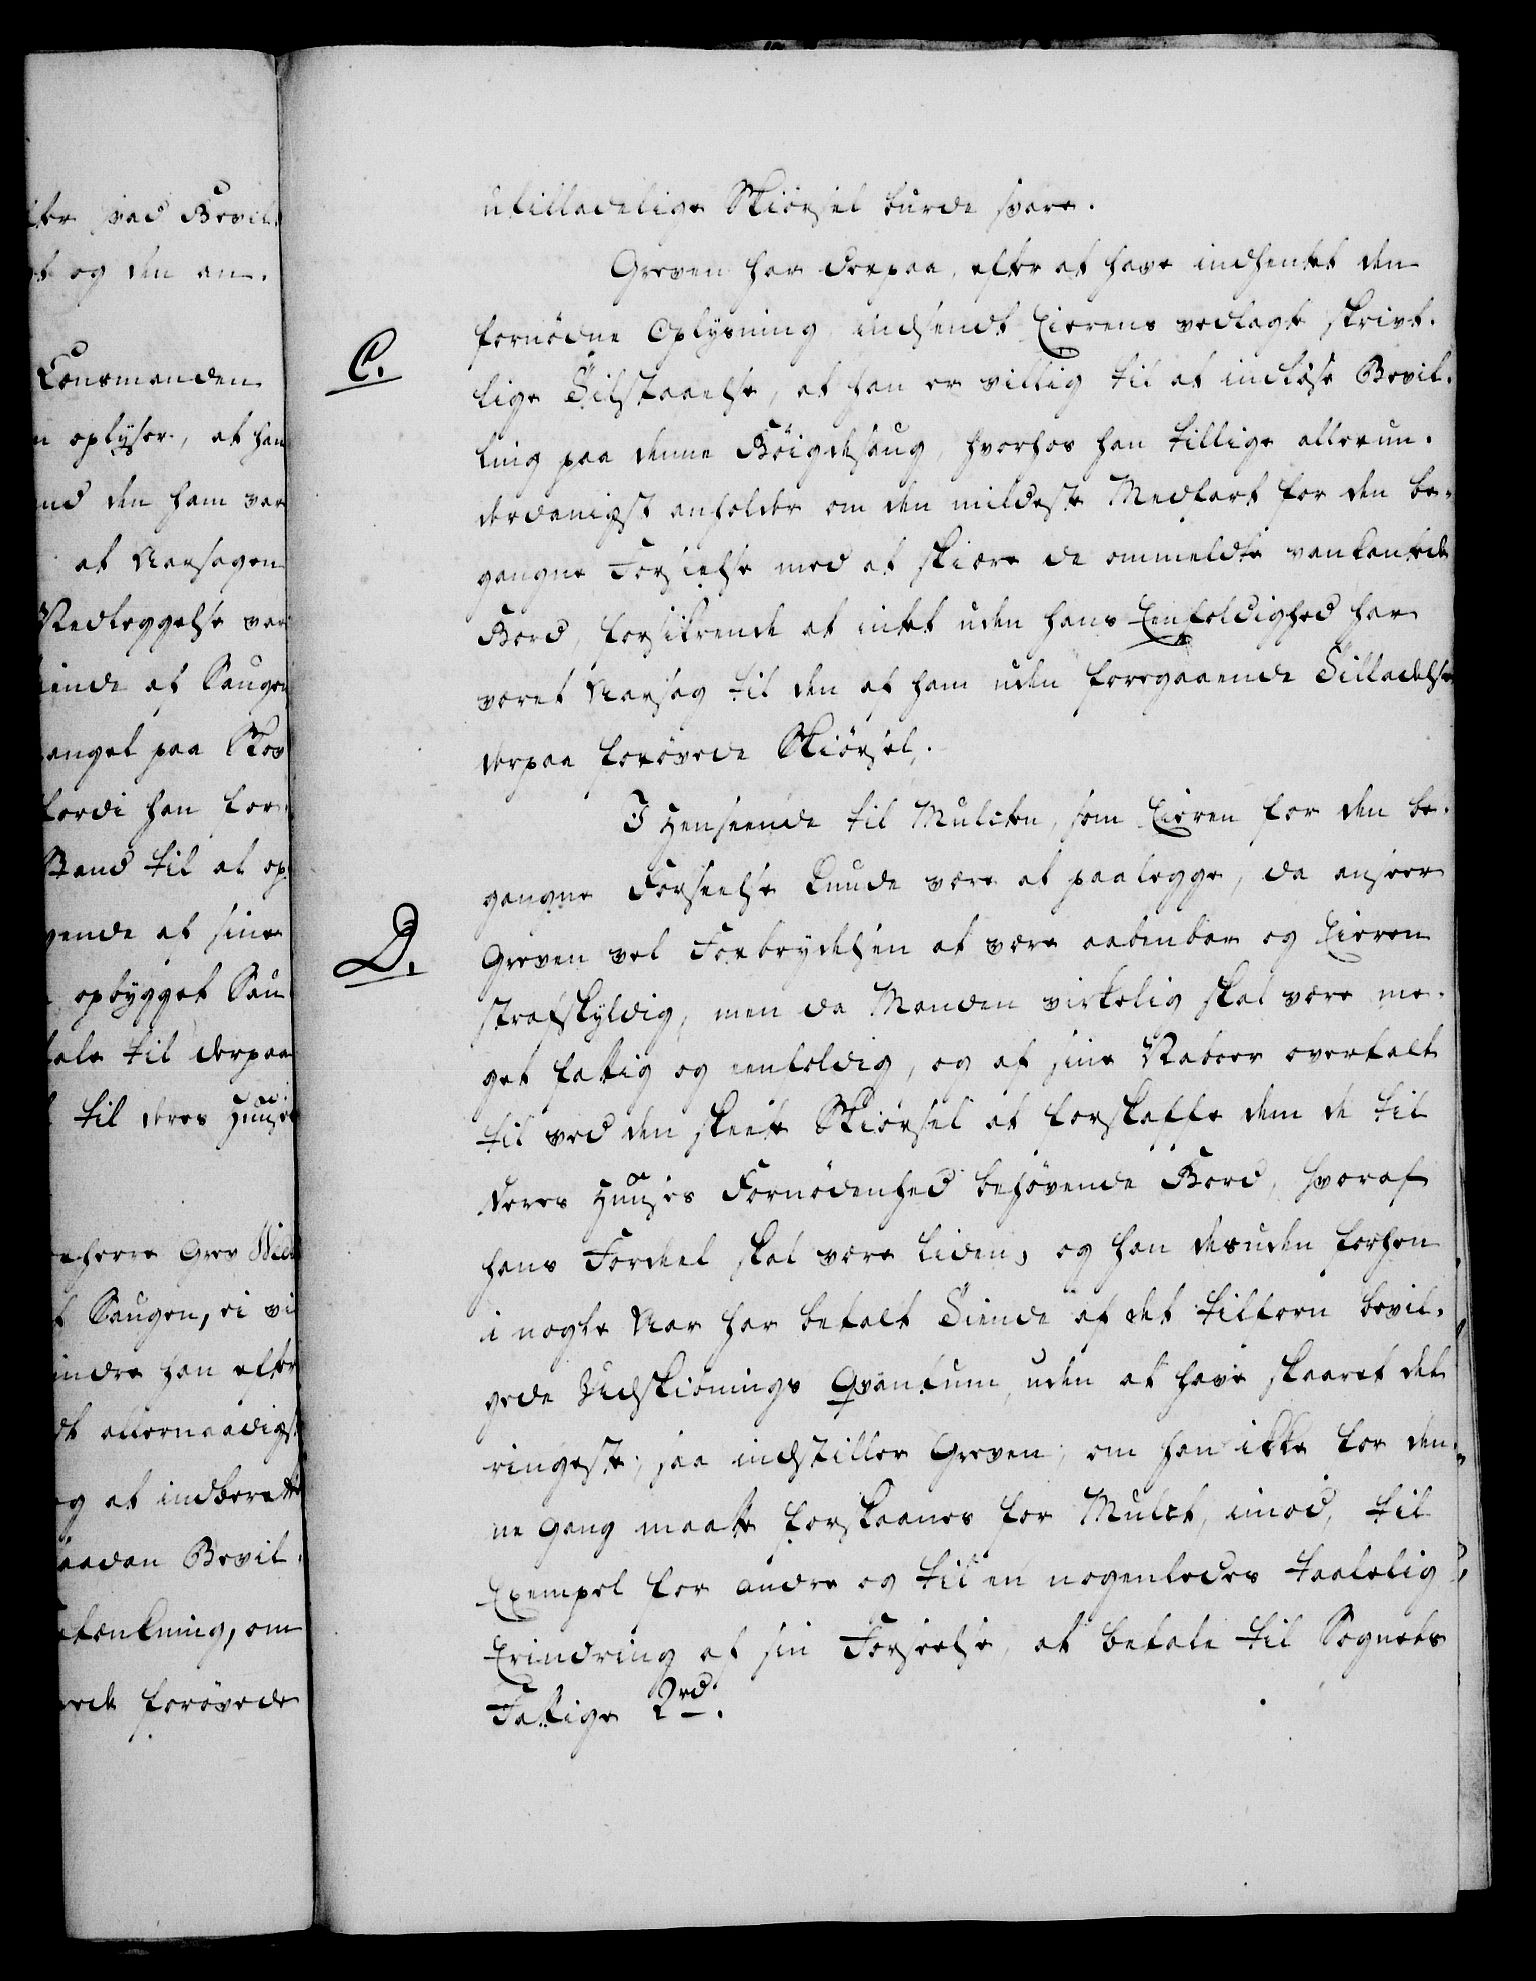 ter ved Bevil-
t og den an-
Lensmanden
n oplyser, at han
nd den ham ved
at Aarsagen
Nedleggelse var
iende at Saugen
anget paa Skov
fordi han for-
Stand til at op-
vende at sine
opbygget Sau
tale til derpaa
til deres Huuses
herre Grev
t Saugen, ei vi
indre han efter
dt allernaadigst
og at indberette
aadan Bevil-
tænkning, om
rede forövede
utilladelige Skiørsel burde svare.
Greven har derpaa, efter at have indhentet den
fornödne Oplysning indsendt Eierens vedlagte skrivt-
C.
lige Tilstaaelse, at han er villig til at indlöse Bevil-
ling paa denne Böigdesaug, hvorhos han tillige allerun-
derdanigst anholder om den mildeste Medfart for den be-
gangne Forseelse med at skiære de ommeldte vankantede
Bord, forsikrende at intet uden hans Eenfoldighed har
været Aarsag til den af ham uden foregaaende Tilladelse
derpaa forövede Skiörsel.
I Henseende til Mulcten, som Eieren for den be-
gangne Forseelse kunde være at paalegge, da anseer
D.
Greven vel Forbrydelsen at være aabenbar og Eieren
strafskyldig, men da Manden virkelig skal være me-
get fattig og eenfoldig, og af sine Naboer overtalt
til ved den skeete Skiörsel at forskaffe dem de til
deres Huuses Fornödenhed behövende Bord, hvoraf
hans Fordeel skal være liden, og han desuden forhen
i nogle Aar har betalt Tiende af det tilforn bevil-
gede Udskiærings Qvantum, uden at have skaaret det
ringeste; saa indstiller Greven, om han ikke for den-
ne Gang maatte forskaanes for Mulct, imod, til
Exempel for andre og til en nogenledes taalelig
Erindring af sin Forseelse, at betale til Sognets
Fattige 2 rd.